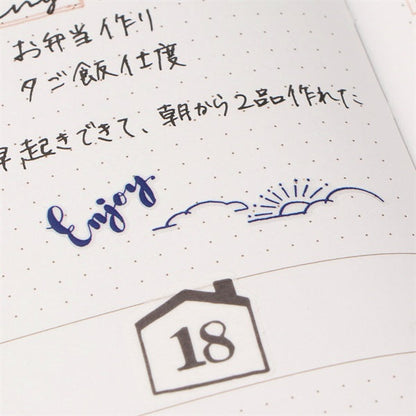 お弁当作り
夕ご飯仕度
早起きできて、朝から2品作れた
Enjoy
18